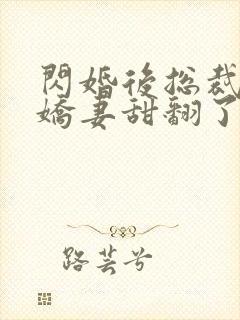 閃婚後總裁
嬌妻甜翻了
路芸兮